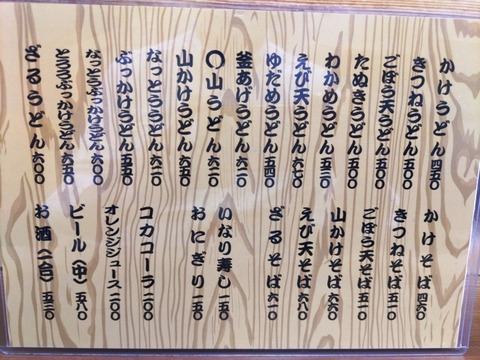 かけうどん 四五〇
きつねうどん 五〇〇
ごぼう天うどん 五〇〇
たぬきうどん 五〇〇
わかめうどん 五三〇
えび天うどん 六七〇
ゆだめうどん 五四〇
釜あげうどん 六二〇
〇山うどん 六二〇
山かけうどん 六五〇
なっとううどん 六二〇
ぶっかけうどん 五五〇
なっとうぶっかけうどん 六〇〇
とろろぶっかけうどん 六五〇
ざるうどん 六〇〇
かけそば 四六〇
きつねそば 五一〇
ごぼう天そば 五一〇
山かけそば 六六〇
えび天そば 六八〇
ざるそば 六一〇
いなり寿し 一五〇
おにぎり 一五〇
コカコーラ 二〇〇
オレンジジュース 二〇〇
ビール(中) 五八〇
お酒(一合) 五三〇